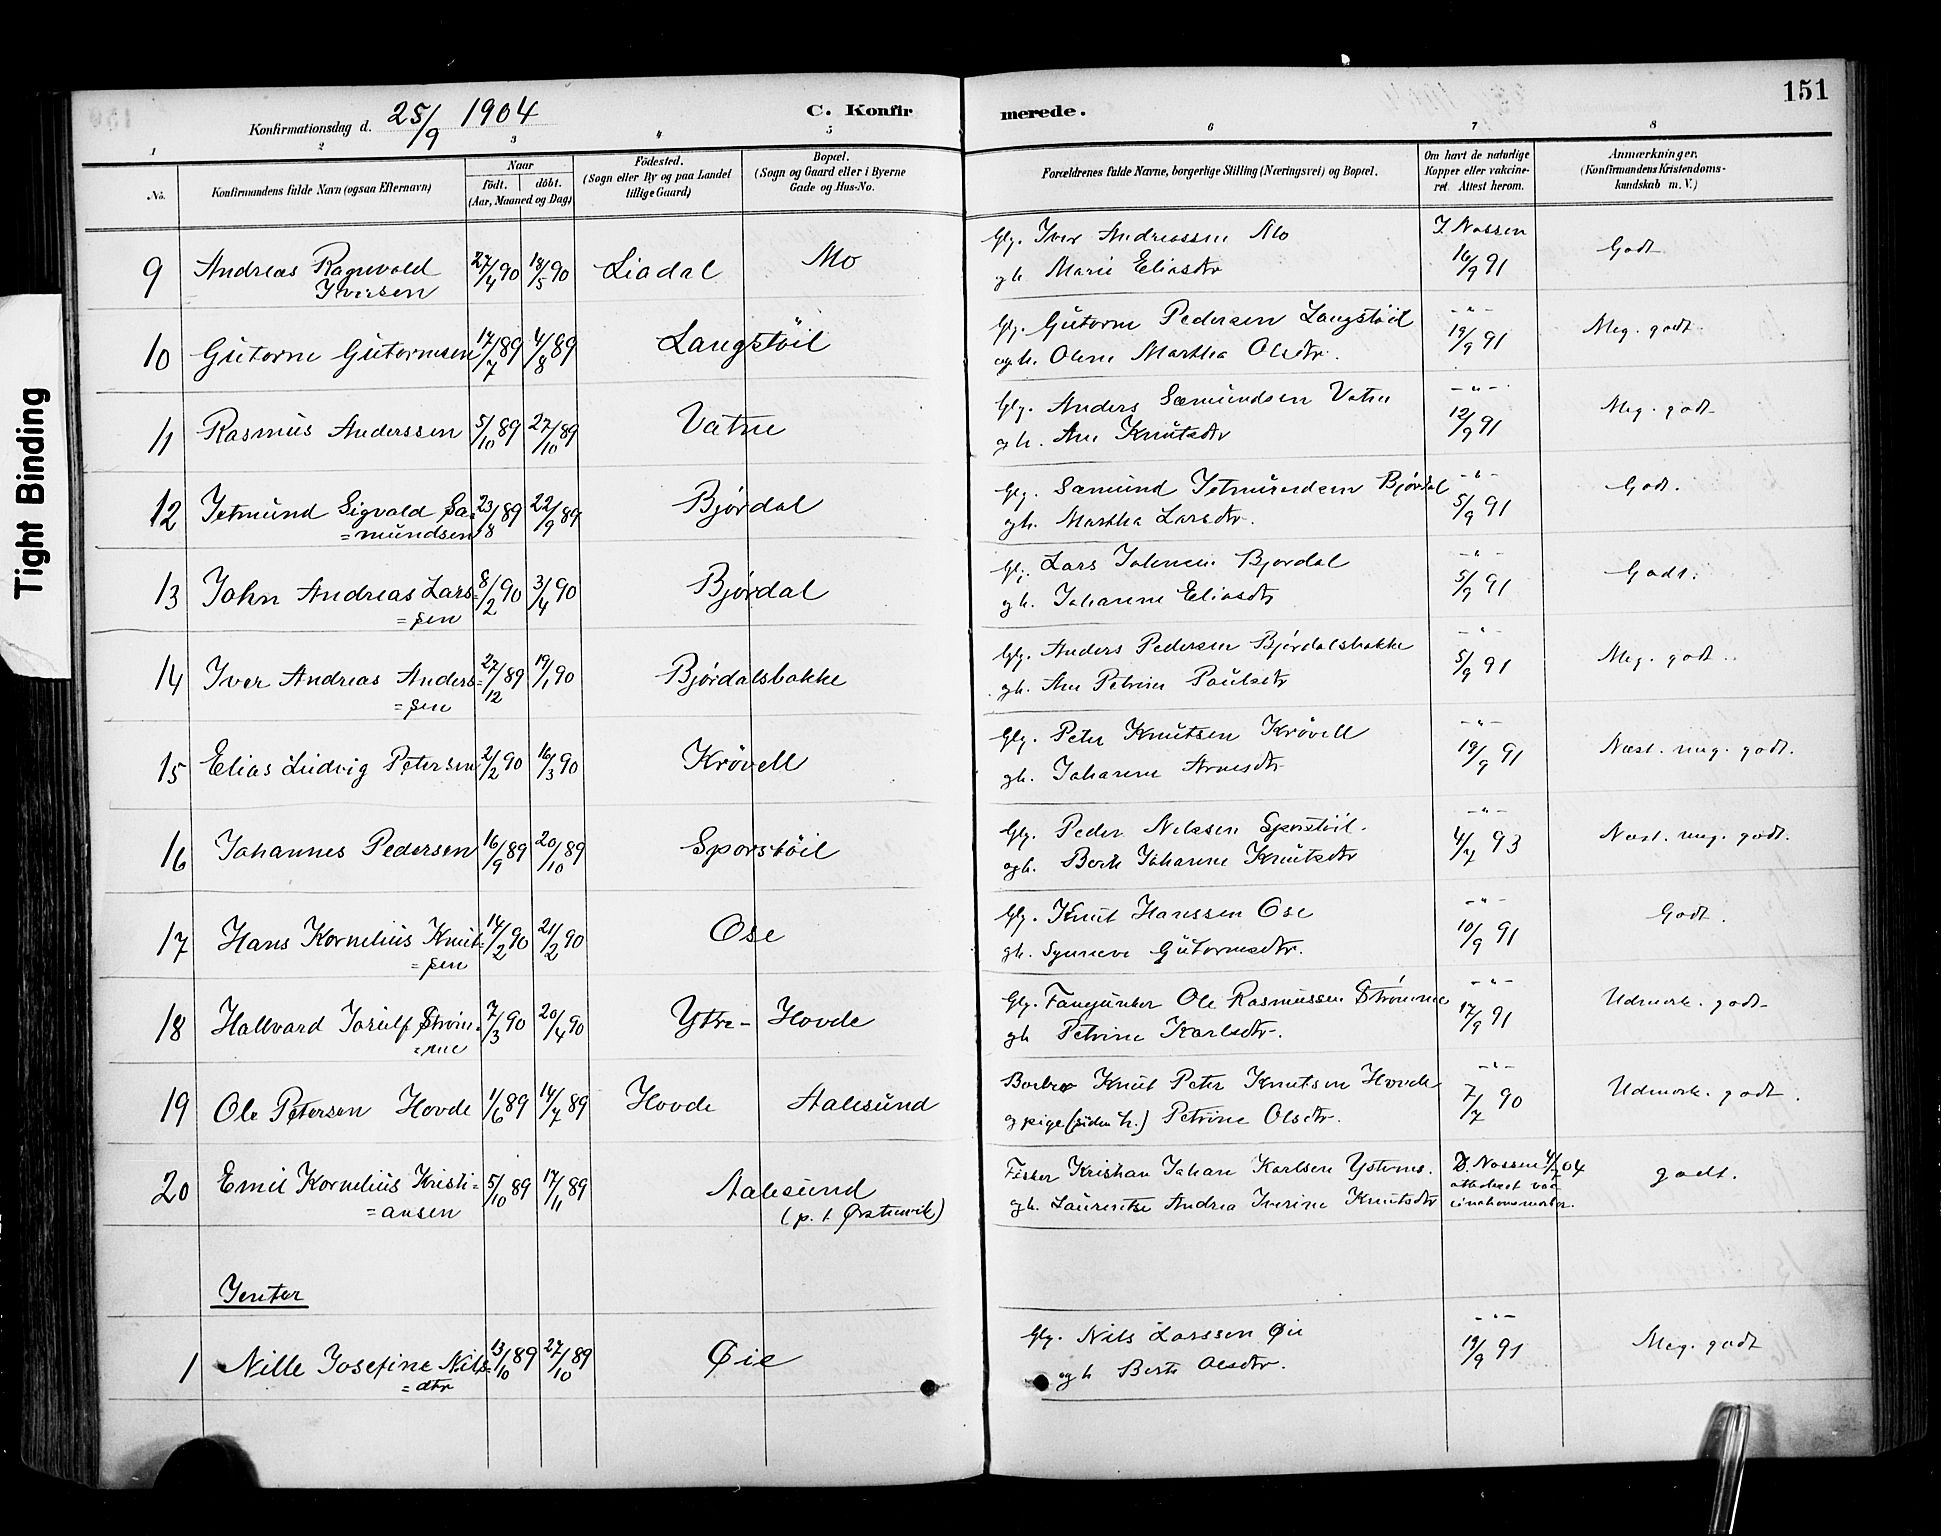 Tight Binding
151
Konfirmationsdag d. 25/9 1904
C. Konfirmerede.
1 2 3 4 5 6 7 8
No.
Konfirmandens fulde Navn (ogsaa Efternavn)
Naar
födt. döbt.
(Aar, Maaned og Dag)
Födested.
(Sogn eller By og paa Landet
tillige Gaard)
Bopæl.
(Sogn og Gaard eller i Byerne
Gade og Hus-No.
Forældrenes fulde Navne, borgerlige Stilling (Næringsvei) og Bopæl.
Om havt de naturlige
Kopper eller vakcine-
ret. Attest herom.
Anmærkninger.
(Konfirmandens Kristendoms-
kundskab m. V.)
9 Andreas Ragnvald 27/4 90 18/5 90 Liadal Mo Glg. Iver Andreassen Mo J. Nossen
Iversen gh. Marie Eliasdtr 16/9 91 Godt
10 Gutorm Gutormsen 17/7 89 4/8 89 Langstöil Glg. Gutorm Pedersen Langstöil -"-
ogh. Olene Martha Olsdtr. 19/9 91 Meg. godt.
11 Rasmus Anderssen 5/10 89 27/10 89 Vatne Glg. Anders Sæmundsen Vatne -"-
gh. Ane Knutsdtr 12/9 91 Meg. godt
12 Jetmund Sigvald Sæ- 23/8 89 22/9 89 Bjørdal Glg. Sæmund Jetmundsen Bjørdal -"-
=mundsen gh. Martha Larsdtr. 5/9 91 Godt.
13 John Andreas Lars= 8/2 90 3/4 90 Bjørdal Glg. Lars Johnsen Bjørdal -"-
=sen gh. Johanne Eliasdtr 5/9 91 Godt.
14 Iver Andreas Anders= 27/12 89 19/1 90 Bjørdalsbakke Glg. Anders Pedersen Bjørdalsbakke -"-
=sen gh. Ane Petrine Paulsdtr 5/9 91 Meg. godt.
15 Elias Ludvig Petersen 2/2 90 16/3 90 Krövell Glg. Peter Knutsen Krövell -"-
gh. Johanne Arnesdtr 19/9 91 Næst. meg. godt.
16 Johannes Pedersen 16/9 89 20/10 89 Sporstöil Glg. Peder Nilssen Sporstöil. -"-
ogh. Berte Johanne Knutsdtr 4/7 93 Næst. meg. godt.
17 Hans Kornelius Knut= 14/2 90 21/2 90 Ose Glg. Knut Hanssen Ose -"-
=sen gh. Synneve Gutormsdtr. 10/9 91 Godt.
18 Hallvard Jorulf Ström= 7/3 90 20/4 90 Ytre-Hovde Glg. Fanejunker Ole Rasmussen Strömme -"-
=me gh Petrine Karlsdtr. 17/9 91 Udmerk. godt
19 Ole Petersen Hovde 1/6 89 14/7 89 Hovde Aalesund Knut Peter Knutsen Hovde -"-
og pige (siden h.) Petrine Olsdtr. 7/7 90 Udmerk. godt.
20 Emil Kornelius Kristi= 5/10 89 17/11 89 Aalesund Fisker Kristian Johan Karlsen Ystenes. D. Nossen 04
=ansen (p. t. Ørstenvik) gh. Laurentse Andrea Iverine Knutsdtr godt.
Jenter
1 Nille Josefine Nils= 13/10 89 27/10 89 Øie Glg. Nils Larssen Øie -"-
=dtr ogh Berte Olsdtr. 19/9 91 Meg. godt